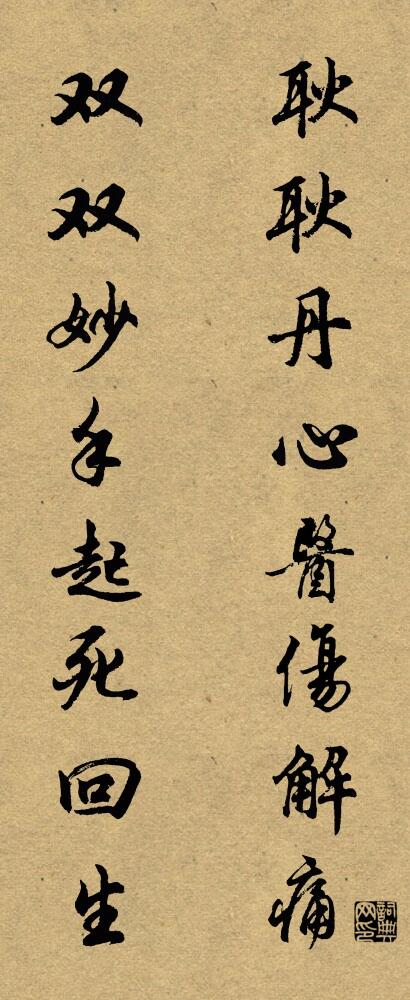 耿耿丹心醫傷解痛
双双妙手起死回生
詞典网印